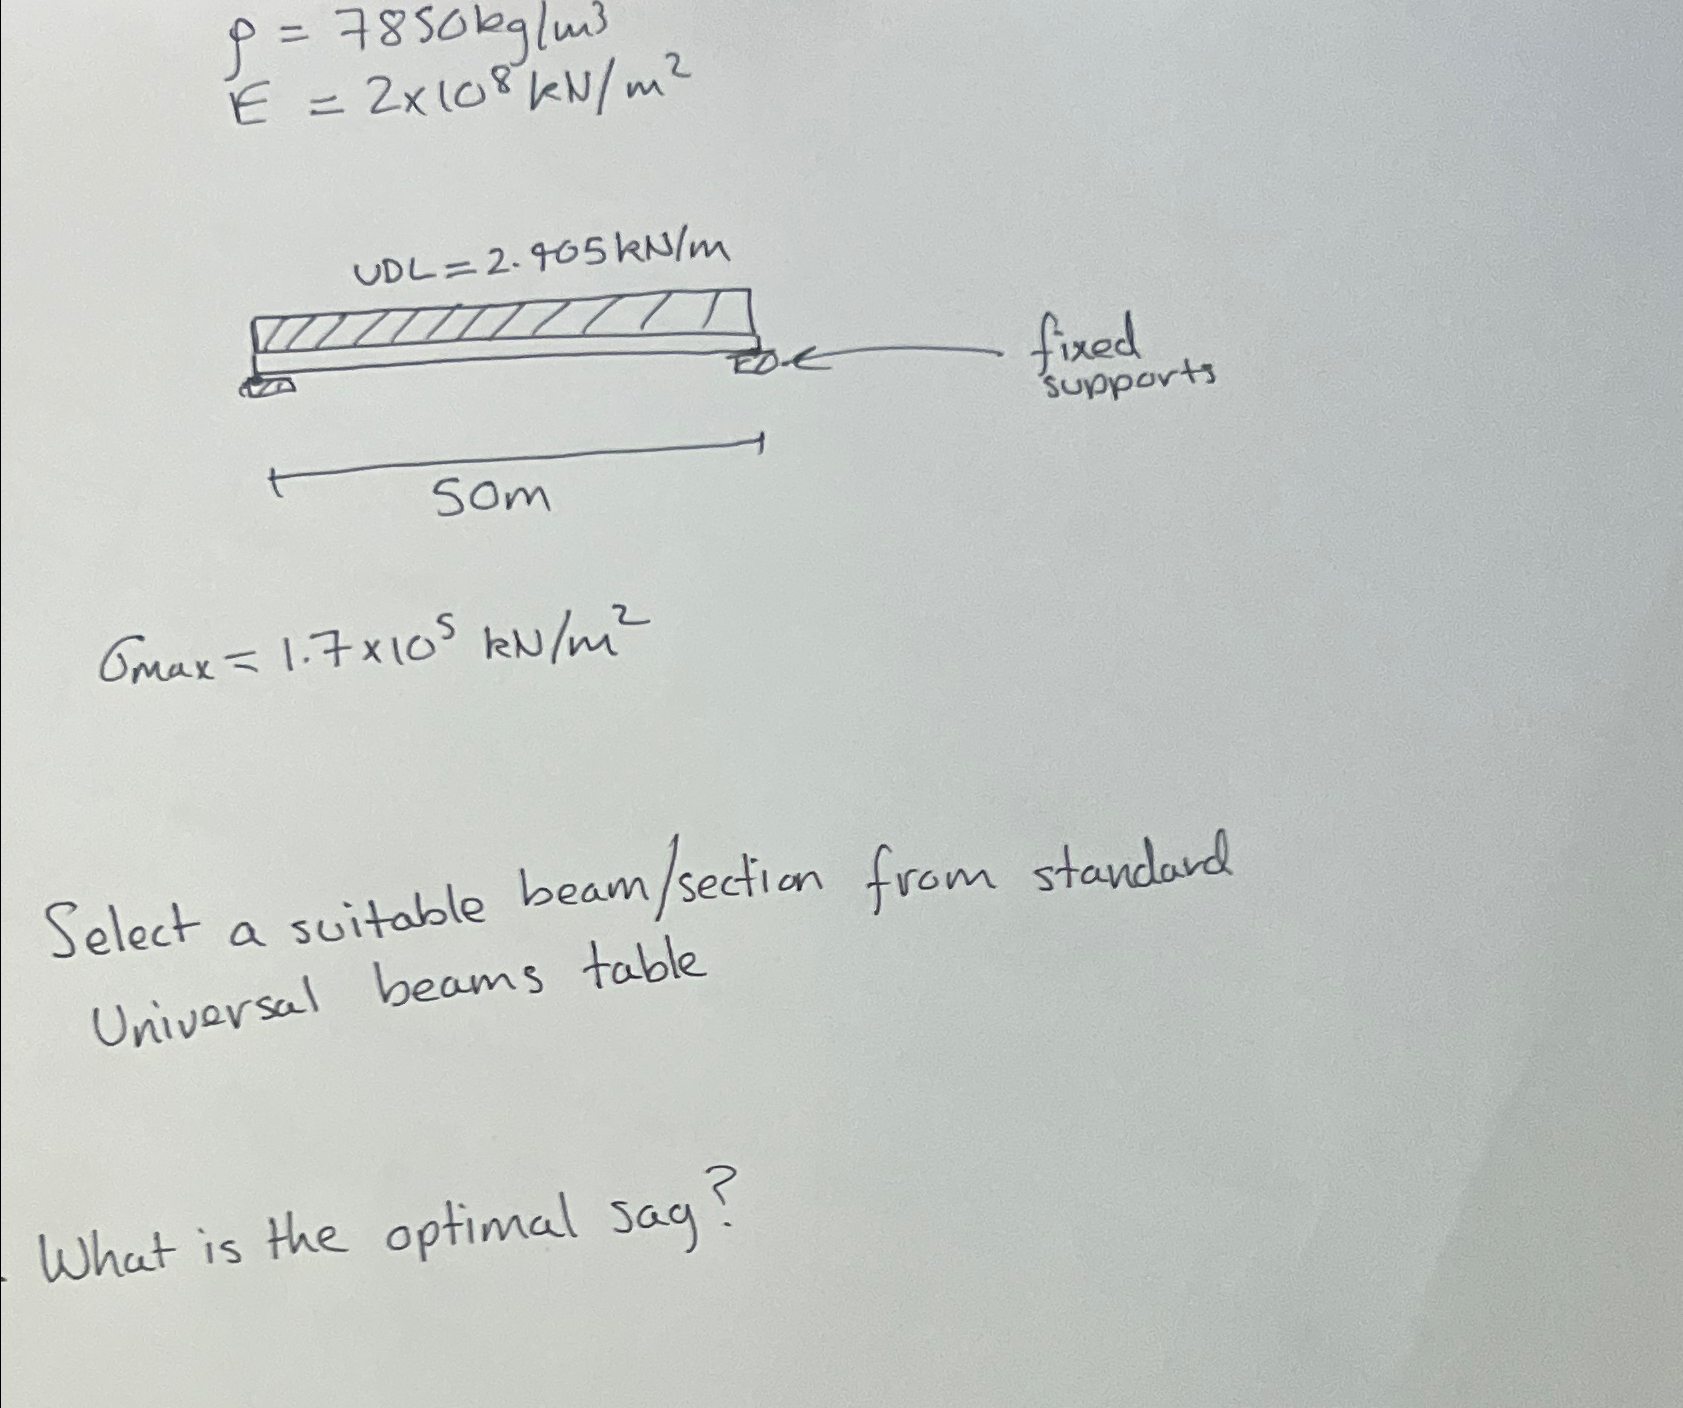 ρ = 7850kg/m³
E = 2x10⁸ kN/m²
UDL = 2.905kN/m
fixed
supports
50m
σmax = 1.7x10⁵ kN/m²
Select a suitable beam/section from standard
Universal beams table
What is the optimal sag?